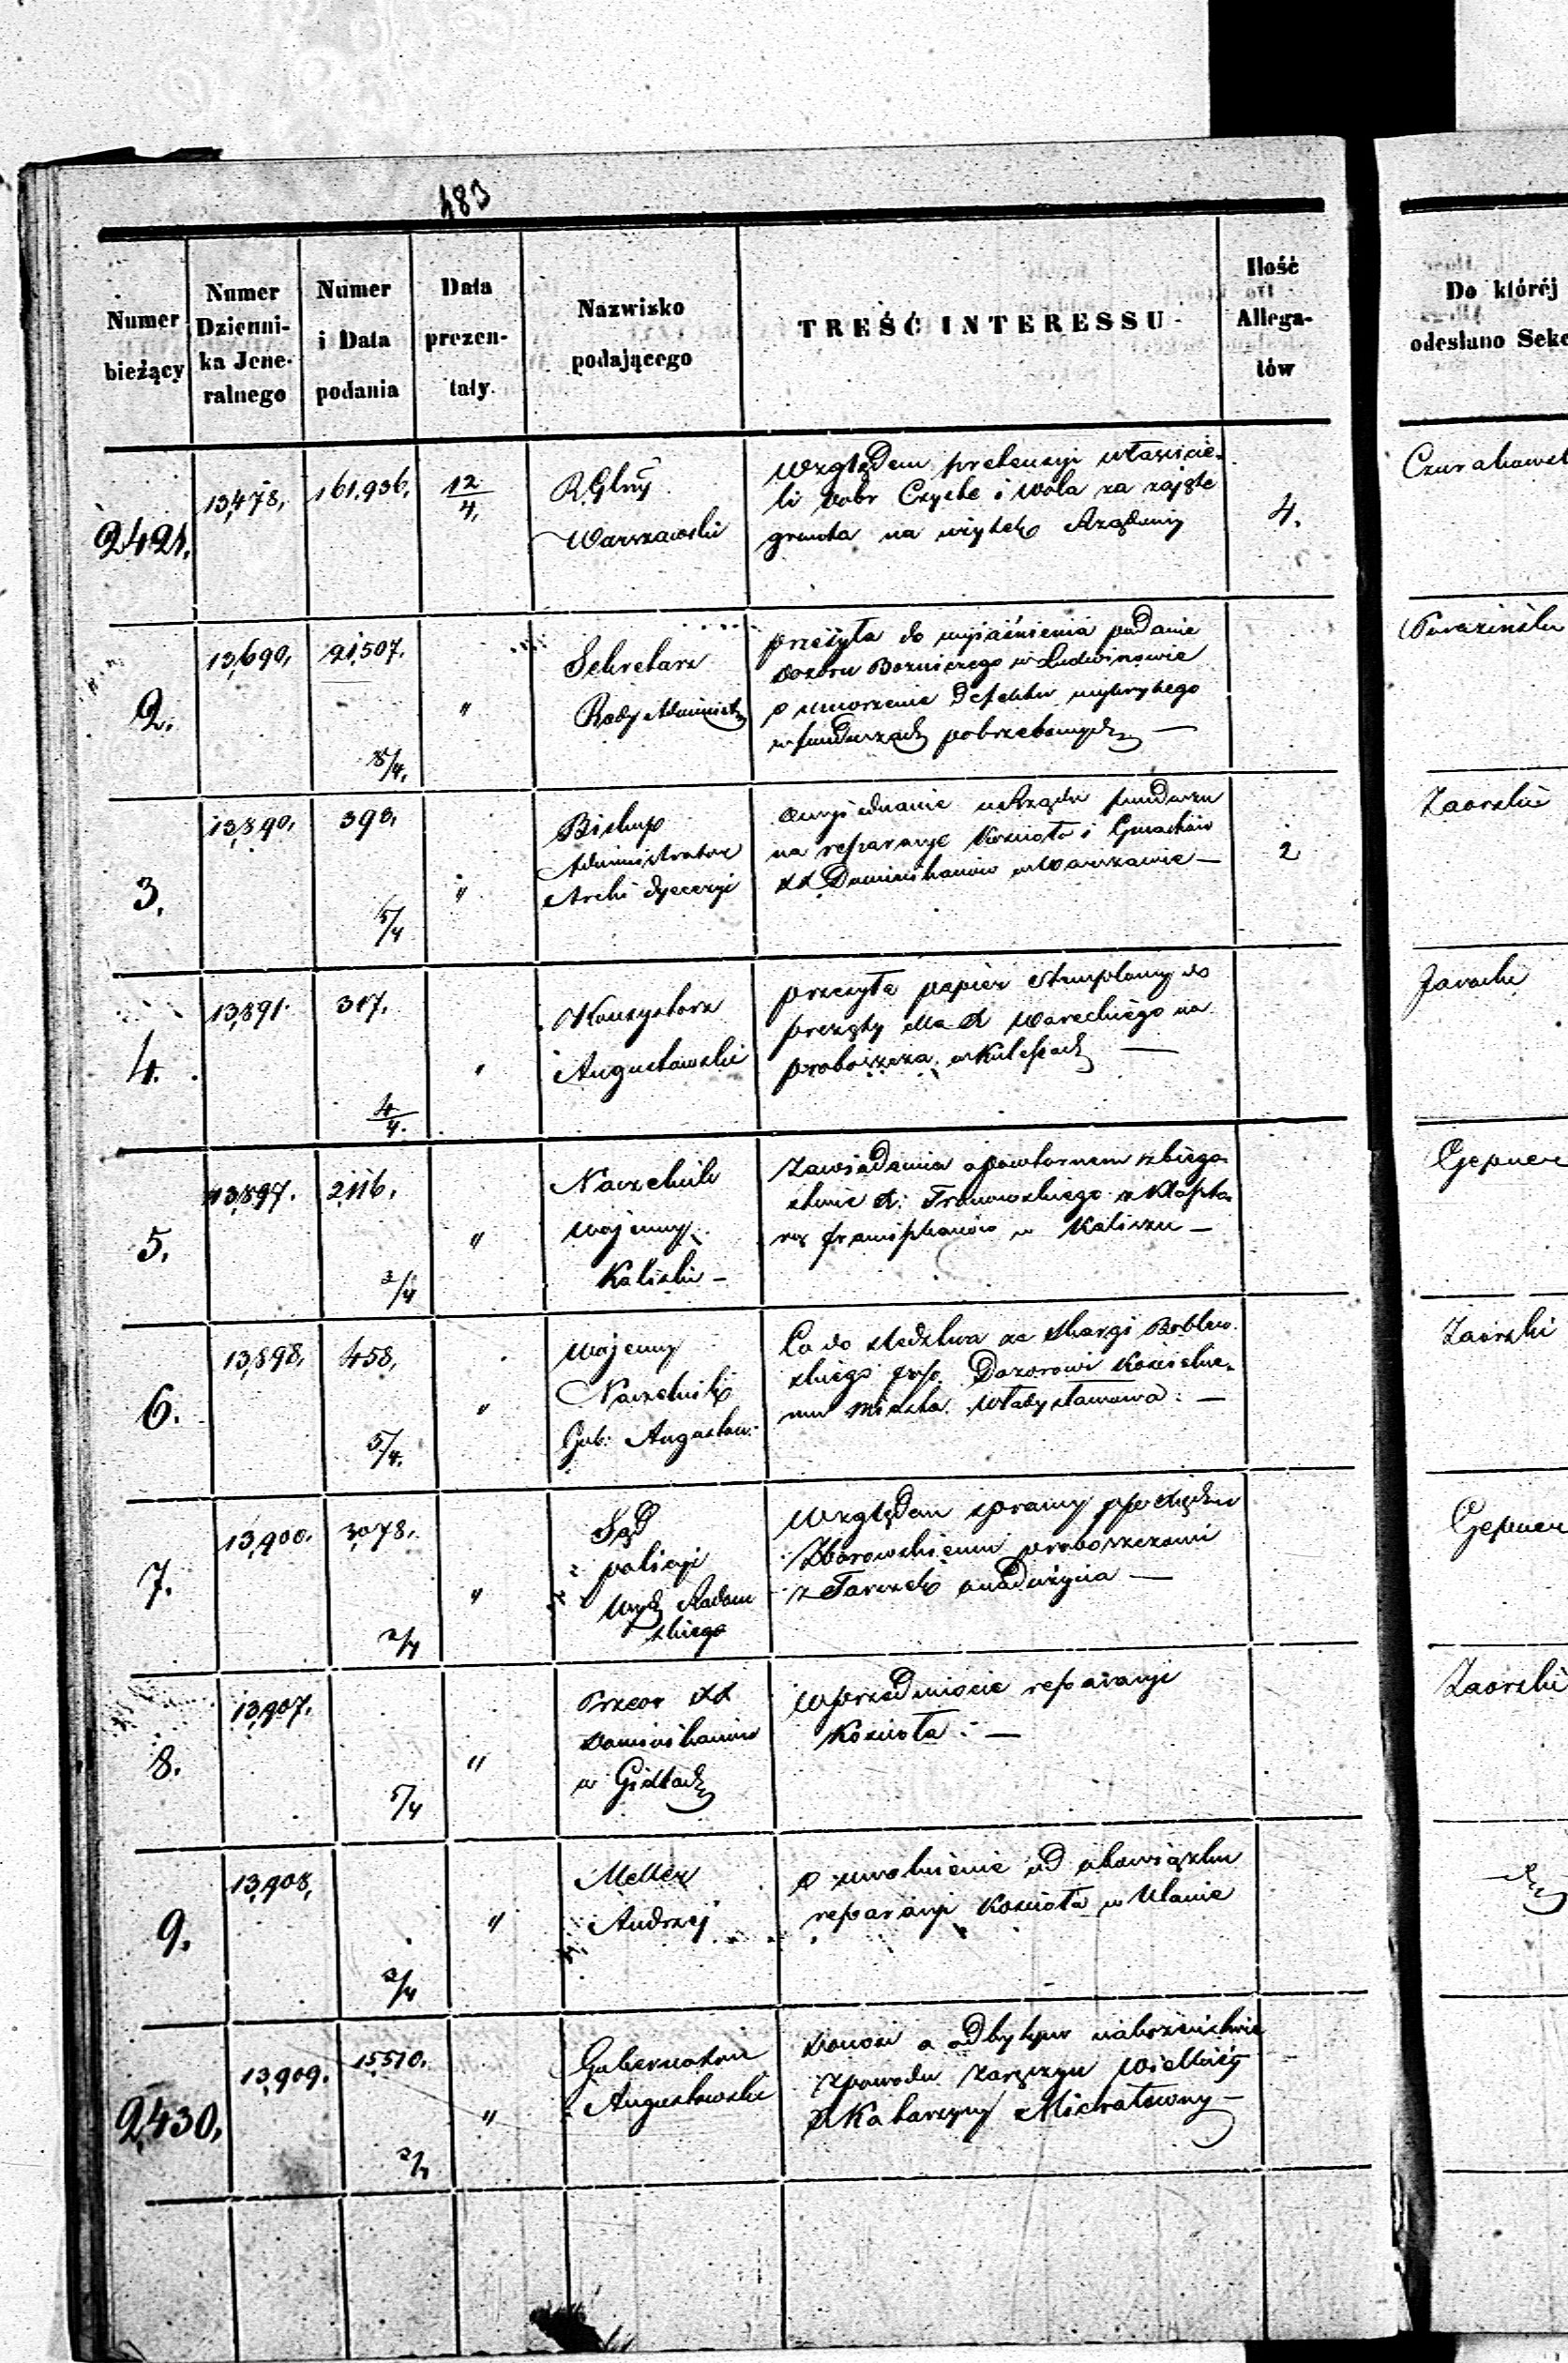 483
Numer bieżący
Numer Dzienni-
ka Jene-
ralnego
Numer
i Data
podania
Data
prezen-
taty.
Nazwisko
podającego
TREŚĆ INTERESSU
Ilość
Allega-
tów
Do któréj
odesłano Sekc
2421.
13,478.
161,936.
12/4.
R. Glny
Warszawski
Względem pretensyi właścicie-
li dobr Czyste i Wola za zajęte
grunta na użytek Rządowy
4.
2.
13,690.
21,507.
8/4.
"
Sekretarz
Rady Administr
przesyła do wyjaśnienia podanie
dozoru Bozniczego w Ludwinowie
o umorzenie defektu wykrytego
w funduszach pobrzebowych —
3.
13,890.
393.
5/4
"
Biskup
Administrator
Archi dyecezyi
o wyjednanie u Rządu funduszu
na reparacye Kościoła i Gmachów
XX Dominikanów w Warszawie —
2
Zaorski
4.
13,891.
317.
4/4.
"
Konsystorz
Augustowski
przesyła papier stemplowy do
prezenty dla X Wareckiego na
proboszcza w Kuleszach —
5.
13,897.
2116.
3/4
"
Naczelnik
Wojenny
Kaliski —
Zawiadamia o powtornem zbiego
stwie X: Tronowskiego z Klaszto
ru franciszkanów w Kaliszu —
Gepner
6.
13,898.
458.
5/4.
"
Wojenny
Naczelnik
Gub: Augustow:
Co do śledztwa ze skargi Boblew
skiego przp. Dozorowi Kościelne-
mu miasta Władysławowa. —
Zaorski
7.
13,900.
3078.
2/4
"
Sąd
policyi
Wydz Radom
skiego
Względem sprawy ppko Xiędzu
Zborowskiemu proboszczowi
z Tarczek o nadużycia —
Gepner
8.
13,907.
5/4
"
Przeor XX
Dominikanów
w Gidlach
W przedmiocie reparacyi
Kościoła. —
Zaorski
9.
13,908.
3/4
"
Meller
Andrzej
o uwolnienie od obowiązku
reparacyi Kościoła w Ulanie
2,430.
13,909.
15,510.
"
Gubernator
Augustowski
donosi o odbytym nabożeństwie
z powodu zaręczyn Wielkiej
X Katarzyny Michałowny —